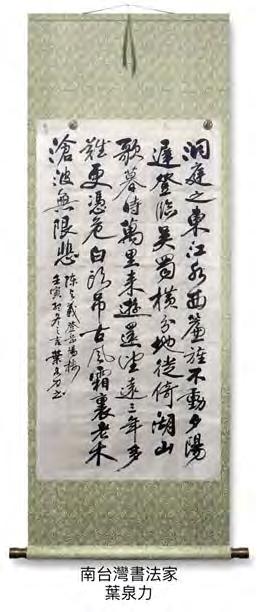 洞庭之東江水西簾旌不動夕陽
遲登臨吳蜀橫分地徙倚湖山
欲暮時萬里來遊還望遠三年多
難更憑危白頭吊古風霜裏老木
滄波無限悲
陈与義登岳陽樓
壬寅初冬之吉葉泉力書
南台灣書法家
葉泉力